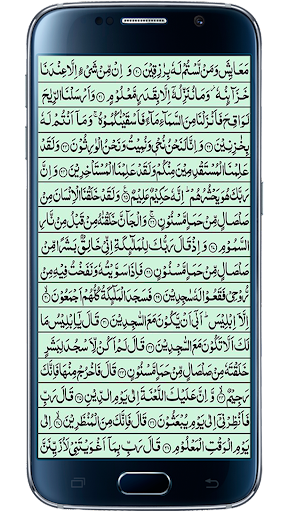 مَعَايِشَ وَمَنْ لَّسْتُمْ لَهٗ بِرٰزِقِيْنَ ۞ وَاِنْ مِّنْ شَيْءٍ اِلَّا عِنْدَنَا
خَزَآئِنُهٗ ۡ وَمَا نُنَزِّلُهٗۤ اِلَّا بِقَدَرٍ مَّعْلُوْمٍ ۞ وَاَرْسَلْنَا الرِّيٰحَ
لَوَاقِحَ فَاَنْزَلْنَا مِنَ السَّمَآءِ مَآءً فَاَسْقَيْنٰكُمُوْهُ ۚ وَمَاۤ اَنْتُمْ لَهٗ
بِخٰزِنِيْنَ ۞ وَاِنَّا لَنَحْنُ نُحْيٖ وَنُمِيْتُ وَنَحْنُ الْوٰرِثُوْنَ ۞ وَلَقَدْ
عَلِمْنَا الْمُسْتَقْدِمِيْنَ مِنْكُمْ وَلَقَدْ عَلِمْنَا الْمُسْتَاْخِرِيْنَ ۞ وَاِنَّ
رَبَّكَ هُوَ يَحْشُرُهُمْ ؕ اِنَّهٗ حَكِيْمٌ عَلِيْمٌ ۞ وَلَقَدْ خَلَقْنَا الْاِنْسَانَ مِنْ
صَلْصَالٍ مِّنْ حَمَاٍ مَّسْنُوْنٍ ۞ وَالْجَآنَّ خَلَقْنٰهُ مِنْ قَبْلُ مِنْ نَّارِ
السَّمُوْمِ ۞ وَاِذْ قَالَ رَبُّكَ لِلْمَلٰٓئِكَةِ اِنِّيْ خَالِقٌۢ بَشَرًا مِّنْ
صَلْصَالٍ مِّنْ حَمَاٍ مَّسْنُوْنٍ ۞ فَاِذَا سَوَّيْتُهٗ وَنَفَخْتُ فِيْهِ مِنْ
رُّوْحِيْ فَقَعُوْا لَهٗ سٰجِدِيْنَ ۞ فَسَجَدَ الْمَلٰٓئِكَةُ كُلُّهُمْ اَجْمَعُوْنَ ۞
اِلَّاۤ اِبْلِيْسَ ؕ اَبٰۤى اَنْ يَّكُوْنَ مَعَ السّٰجِدِيْنَ ۞ قَالَ يٰۤاِبْلِيْسُ مَا
لَكَ اَلَّا تَكُوْنَ مَعَ السّٰجِدِيْنَ ۞ قَالَ لَمْ اَكُنْ لِّاَسْجُدَ لِبَشَرٍ
خَلَقْتَهٗ مِنْ صَلْصَالٍ مِّنْ حَمَاٍ مَّسْنُوْنٍ ۞ قَالَ فَاخْرُجْ مِنْهَا فَاِنَّكَ
رَجِيْمٌ ۞ وَّاِنَّ عَلَيْكَ اللَّعْنَةَ اِلٰى يَوْمِ الدِّيْنِ ۞ قَالَ رَبِّ
فَاَنْظِرْنِيْۤ اِلٰى يَوْمِ يُبْعَثُوْنَ ۞ قَالَ فَاِنَّكَ مِنَ الْمُنْظَرِيْنَ ۞ اِلٰى
يَوْمِ الْوَقْتِ الْمَعْلُوْمِ ۞ قَالَ رَبِّ بِمَاۤ اَغْوَيْتَنِيْ لَاُزَيِّنَنَّ